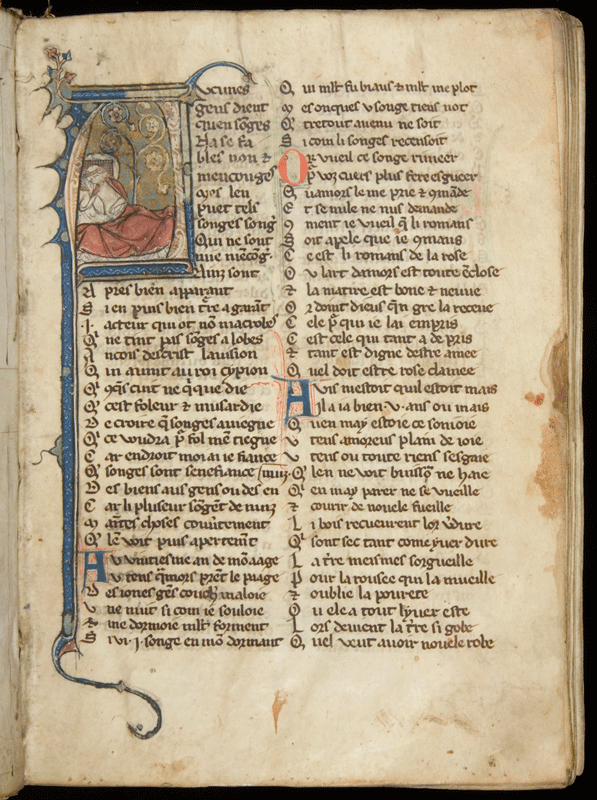 Aucunes
gens dient
qu en sõges
Na se fa
bles non ⁊
mencoũges
mes len
puet tels
songes songr̃
Qui ne sont
mie mẽcõgr̃
Ainz sont
A pres bien apparant
S i en puis bien t̃re a garãt
·I· acteur qui ot nõ macrobes
Qr̃ ne tint pas sõges a lobes
A ncois descrist lauision
Q ui auint au roi cypion
Q̃ 9q̃s cuit ne q̃ que die
Q̃ cest foleur ⁊ musardie
D e croire q̃ songes auiegne
Q̃ ce woudra p̃ fol mẽ tiegne
C ar endroit moi ai ie fiance
Q̃ songes sont senefiance
D es biens aus gens ou des en nuiz
C ar li pluseur sõgẽt de nuiz
M aĩtes choses couũtement
Q̃ lẽ voit puis apertemẽt
Au vintiesme an de mõ aage
A u tens q̃mors prẽt le paage
D es iones gẽs couchiez maloie
V ne nuit si com ie souloie
⁊ me dormoie ml̃t forment
S i vi ·i· songe en mõ dormant
Q ui ml̃t fu biaus ⁊ ml̃t me plot
M es onques v songe riens not
Q̃ tretout auenu ne soit
S i com li songes recensoit
Or vueil ce songe rimeer
P̃ voz cuers plus fere esgueer
Q̃ uamors le me prie ⁊ 9mãde
E t se nule ne nus demande
9 ment ie vueil q̃ li romans
S oit apele que ie 9mans
C e est li romans de la rose
O u lart damors est toute ẽclose
⁊ la matire est bone ⁊ neuue
O r doint dieus q̃n gre la receue
C ele p̃ qui ie lai empris
C est cele qui tant a de pris
⁊ tant est digne destre amee
Q uel doit estre rose clamee
Auis mestoit quil estoit mais
Il a ia bien ·v· ans ou mais
Q uen may estoie ce sonioie
V tens amoreus plain de ioie
V tens ou toute riens sesgaie
Q̃ len ne voit buissõ ne haie
Q̃ en may parer ne se vueille
⁊ couurir de nouele fueille
L i bois recueurent lor ṽdure
Q̃ sont sec tant come yuer dure
L a t̃re meismes sorgueille
P our la rousee qui la mueille
⁊ oublie la pourete
O u ele a tout lyuer este
L ors deuient la t̃re si gobe
Q uel veut auoir nouele robe